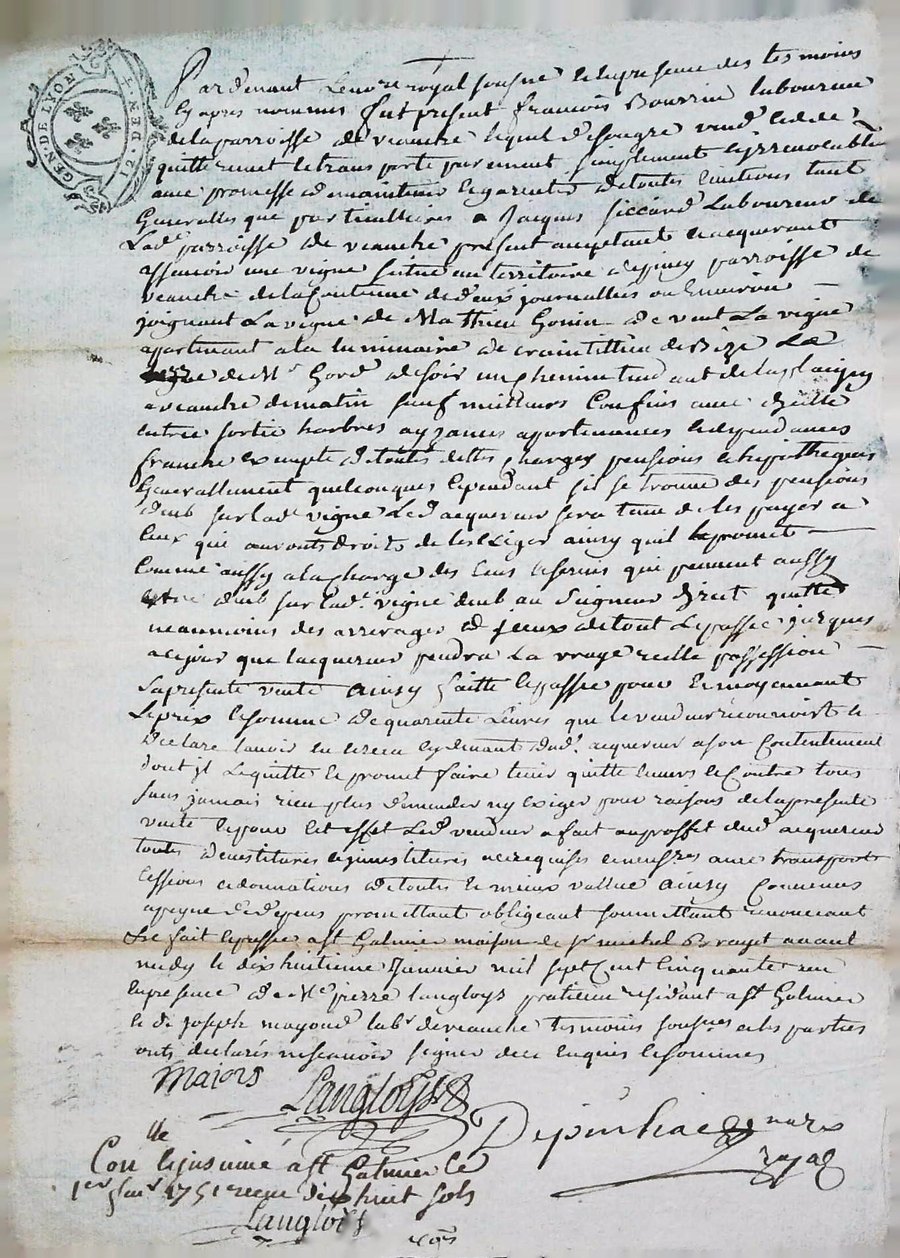 GEN. DE LYON
Pardevant Le no.re royal sousigné et en presence des tesmoins
cy apres nommes fut present francois Bourrin laboureur
de la parroisse de veauche lequel de son gré vend cede
quitte remet et transporte purement simplement et irrevocablem
avec promesse de maintenir et garentir de toutes evictions tant
Generalles que particullieres a Jacques siccard Laboureur de
Lad.e parroisse de veauche present acceptant et acquerant
assavoir une vigne située au territoire parroisse de
veauche de la contenue de deux journallées ou Environ
joignant La vigne de Mathieu Gonin de vent La vigne
appartenant a la luminaire de craintillieu de Bize La
vigne de Mr de soir un chemin tendant de
a veauche de matin sauf meilleurs Confins avec
Entrée sortie harbres ayzances appartenances et dependances
franche exempte de toutes dettes charges pensions et hipotheques
Generallement quelconques cependant sil se trouve des pensions
deub sur lad.e vigne Led acquereur sera tenu de les payer a
Ceux qui auront droits de les Exiger ainsy quil le promet
Comme aussy a la charge des Cens et servis qui peuvent aussy
Etre deub sur Lad.e vigne deub au Seigneur direct quitte
neanmoins des arrerages d'iceux de tout le passé jusques
a ce jour que lacquereur prendra La vraye reelle possession
La presente vente Ainsy faitte et passée pour et moyennant
Le prix et somme de quarente Livres que le vendeur reconnoist et
Declare lavoir eu et receu cy devant dud.t acquereur a son Contentement
dont jl le quitte et promet faire tenir quitte envers et Contre tous
sans jamais rien plus demander ny exiger pour raisons de la presente
vente et pour cet effet Led. vendeur a fait au proffit dud.t acquereur
toutes devestitures et jnvestitures accequises et necessres avec transport
Cessions et donnations de toutes et mieux vallue Ainsy Convenus
a peyne de depens promettant obligeant soumettant renonceant
&c fait et passé a st Galmier maison de Sr michel avant
midy le dixhuitieme Janvier mil sept Cent Cinquante un
En presence de Me pierre Langloys praticien residant a st Galmier
et de Joseph mayoud lab.r de veauche tesmoins sousnes et les parties
onts declarés ne scavoir signer de ce Enquis et sommes
Majors Langloys
Depinhac no.re
royal
Con.lle et jnsinué a st Galmier le
1er 1751 receu dixhuit sols
Langloys